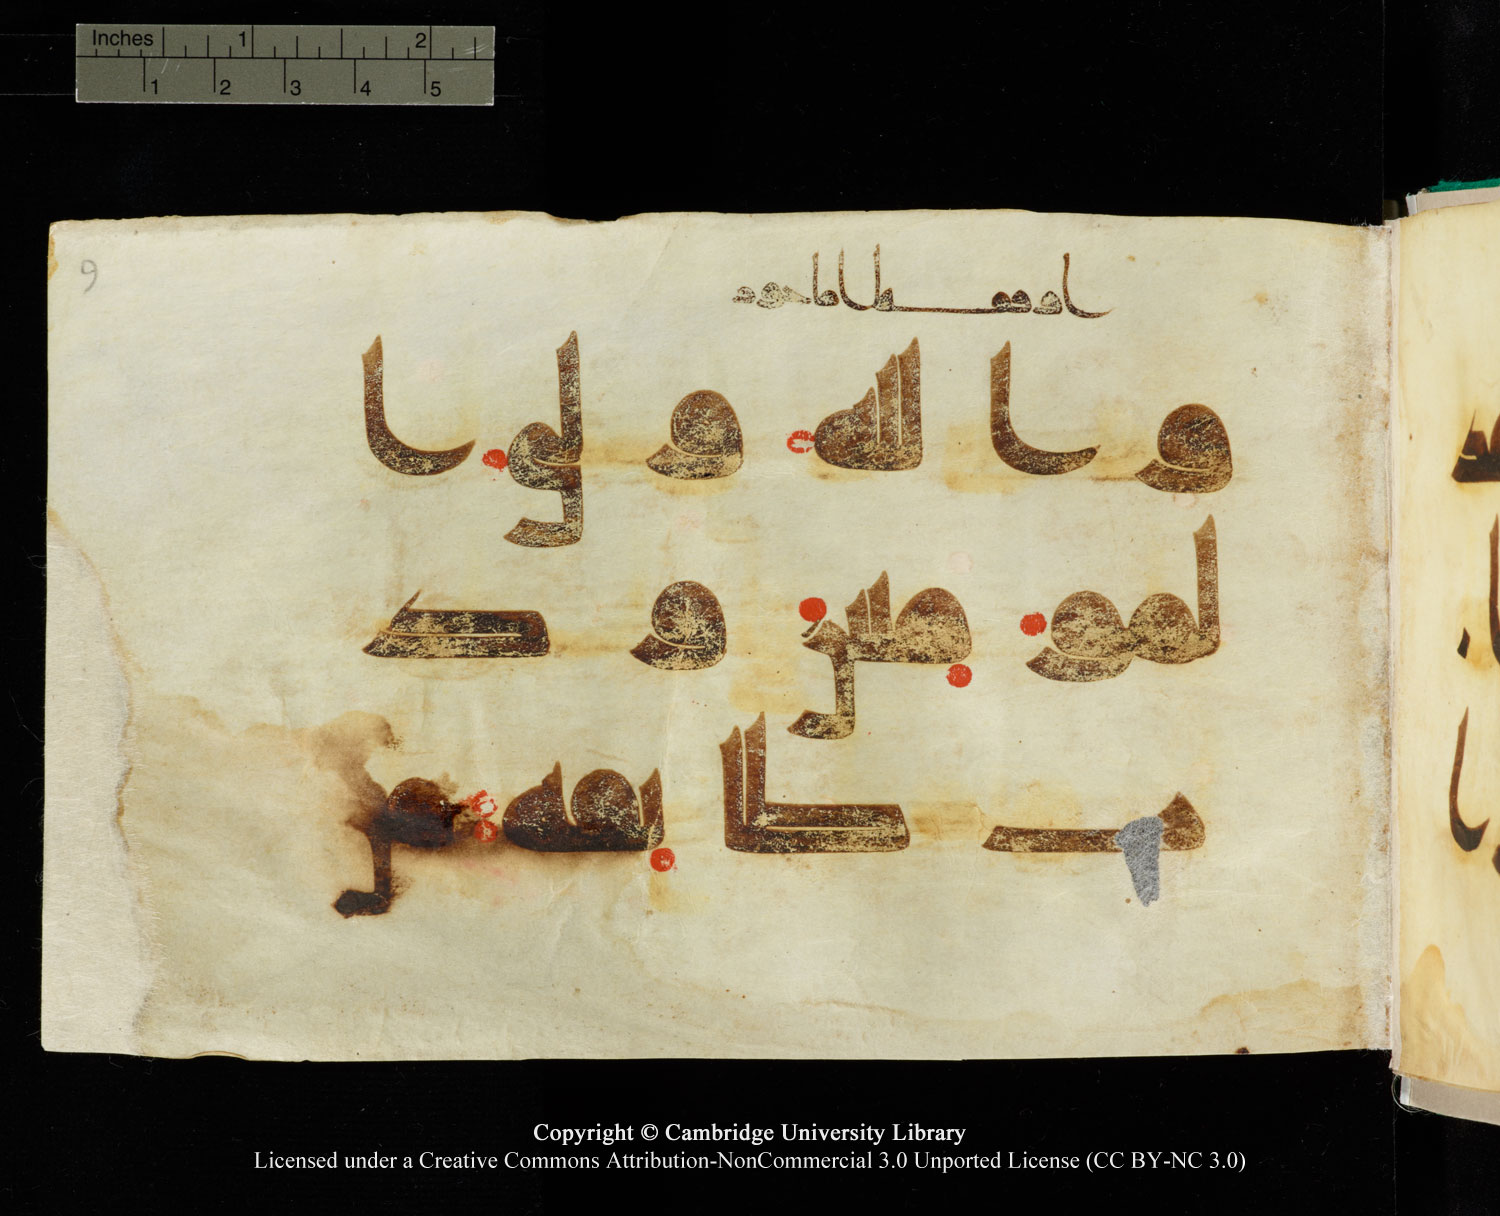 Inches 1 2
1 2 3 4 5
9
اماجور
والله ولي ا
لمومنين ود
ت طايفة من
Copyright © Cambridge University Library
Licensed under a Creative Commons Attribution-NonCommercial 3.0 Unported License (CC BY-NC 3.0)